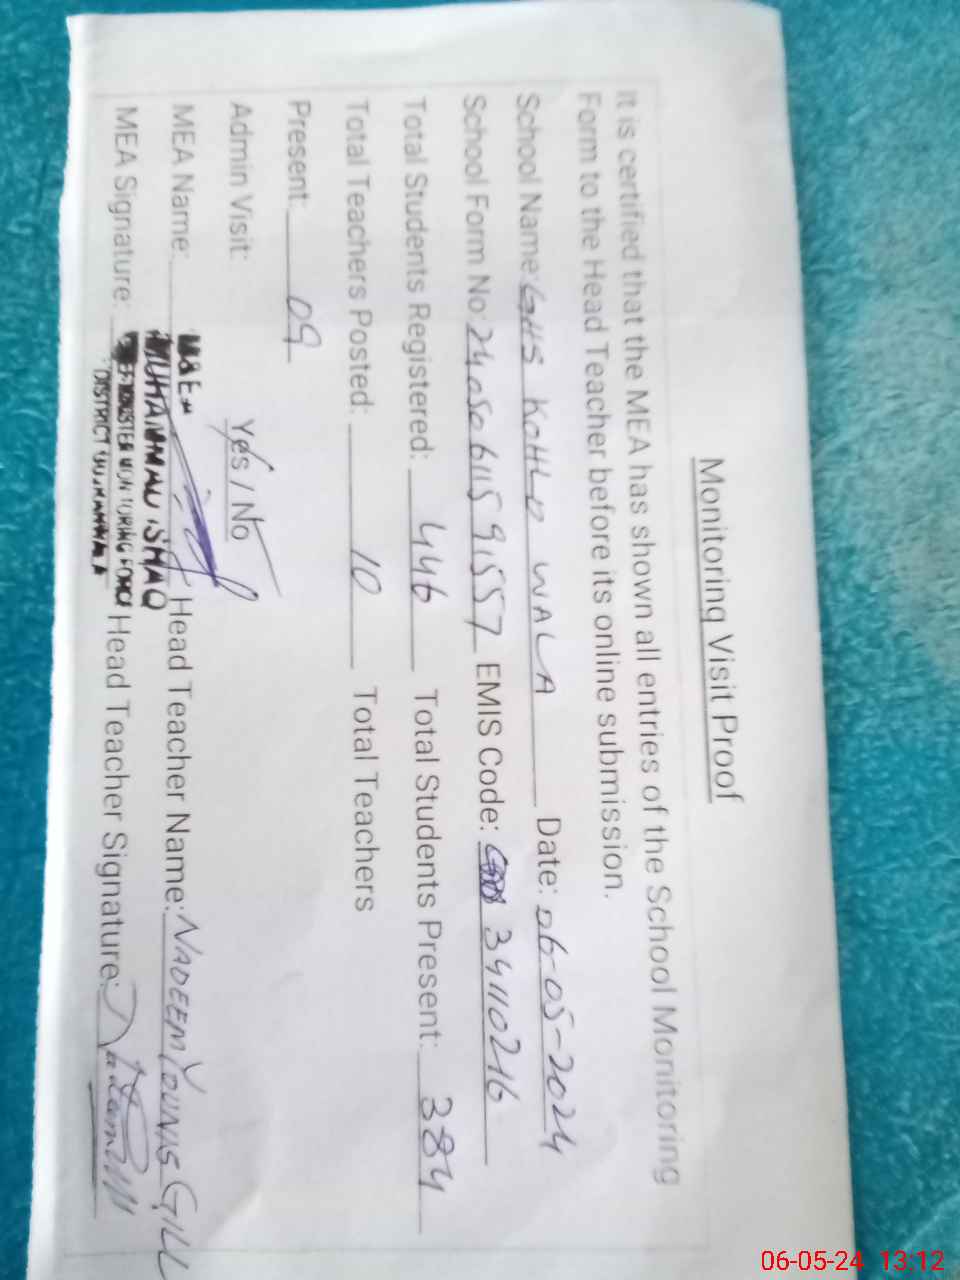 Monitoring Visit Proof
It is certified that the MEA has shown all entries of the School Monitoring
Form to the Head Teacher before its online submission.
School Name: GHS KOHLO WALA Date: 06-05-2024
School Form No: EMIS Code: 34110216
Total Students Registered: 446 Total Students Present: 384
Total Teachers Posted: 10 Total Teachers
Present: 09
Admin Visit: Yes / No
MEA Name: Head Teacher Name: NADEEM YOUNIS GILL
MEA Signature: Head Teacher Signature:
MUHAMMAD
MONITORING FORCE
DISTRICT
06-05-24 13:12